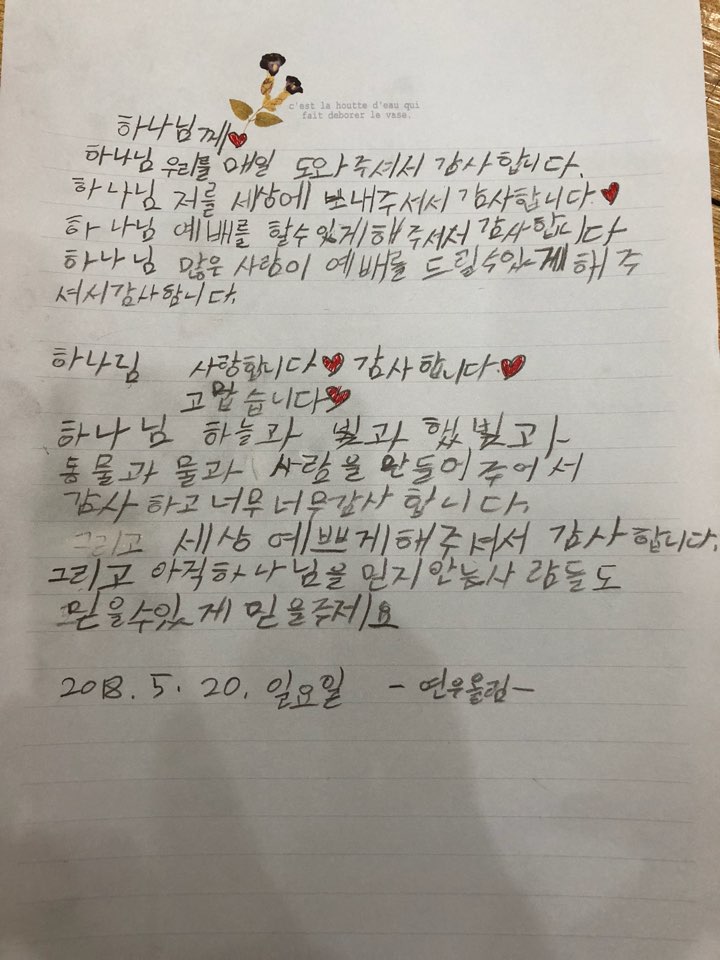 c'est la houtte d'eau qui
fait deborer le vase.
하나님께♥
하나님 우리를 매일 도와주셔서 감사합니다.
하나님 저를 세상에 보내주셔서 감사합니다♥
하나님 예배를 할수있게해주셔서 감사합니다
하나님 많은 사람이 예배를 드릴수있게 해주
셔서감사합니다.
하나님 사랑합니다♥ 감사합니다♥
고맙습니다♥
하나님 하늘과 빛과 햇빛고
동물과 물과 사람을 만들어주어서
감사하고너무너무감사합니다.
그리고 세상 예쁘게해주셔서 감사합니다.
그리고 아직하나님을 믿지안는사람들도
믿을수있게 믿을주제요
2018. 5. 20. 일요일 - 연우올림 -